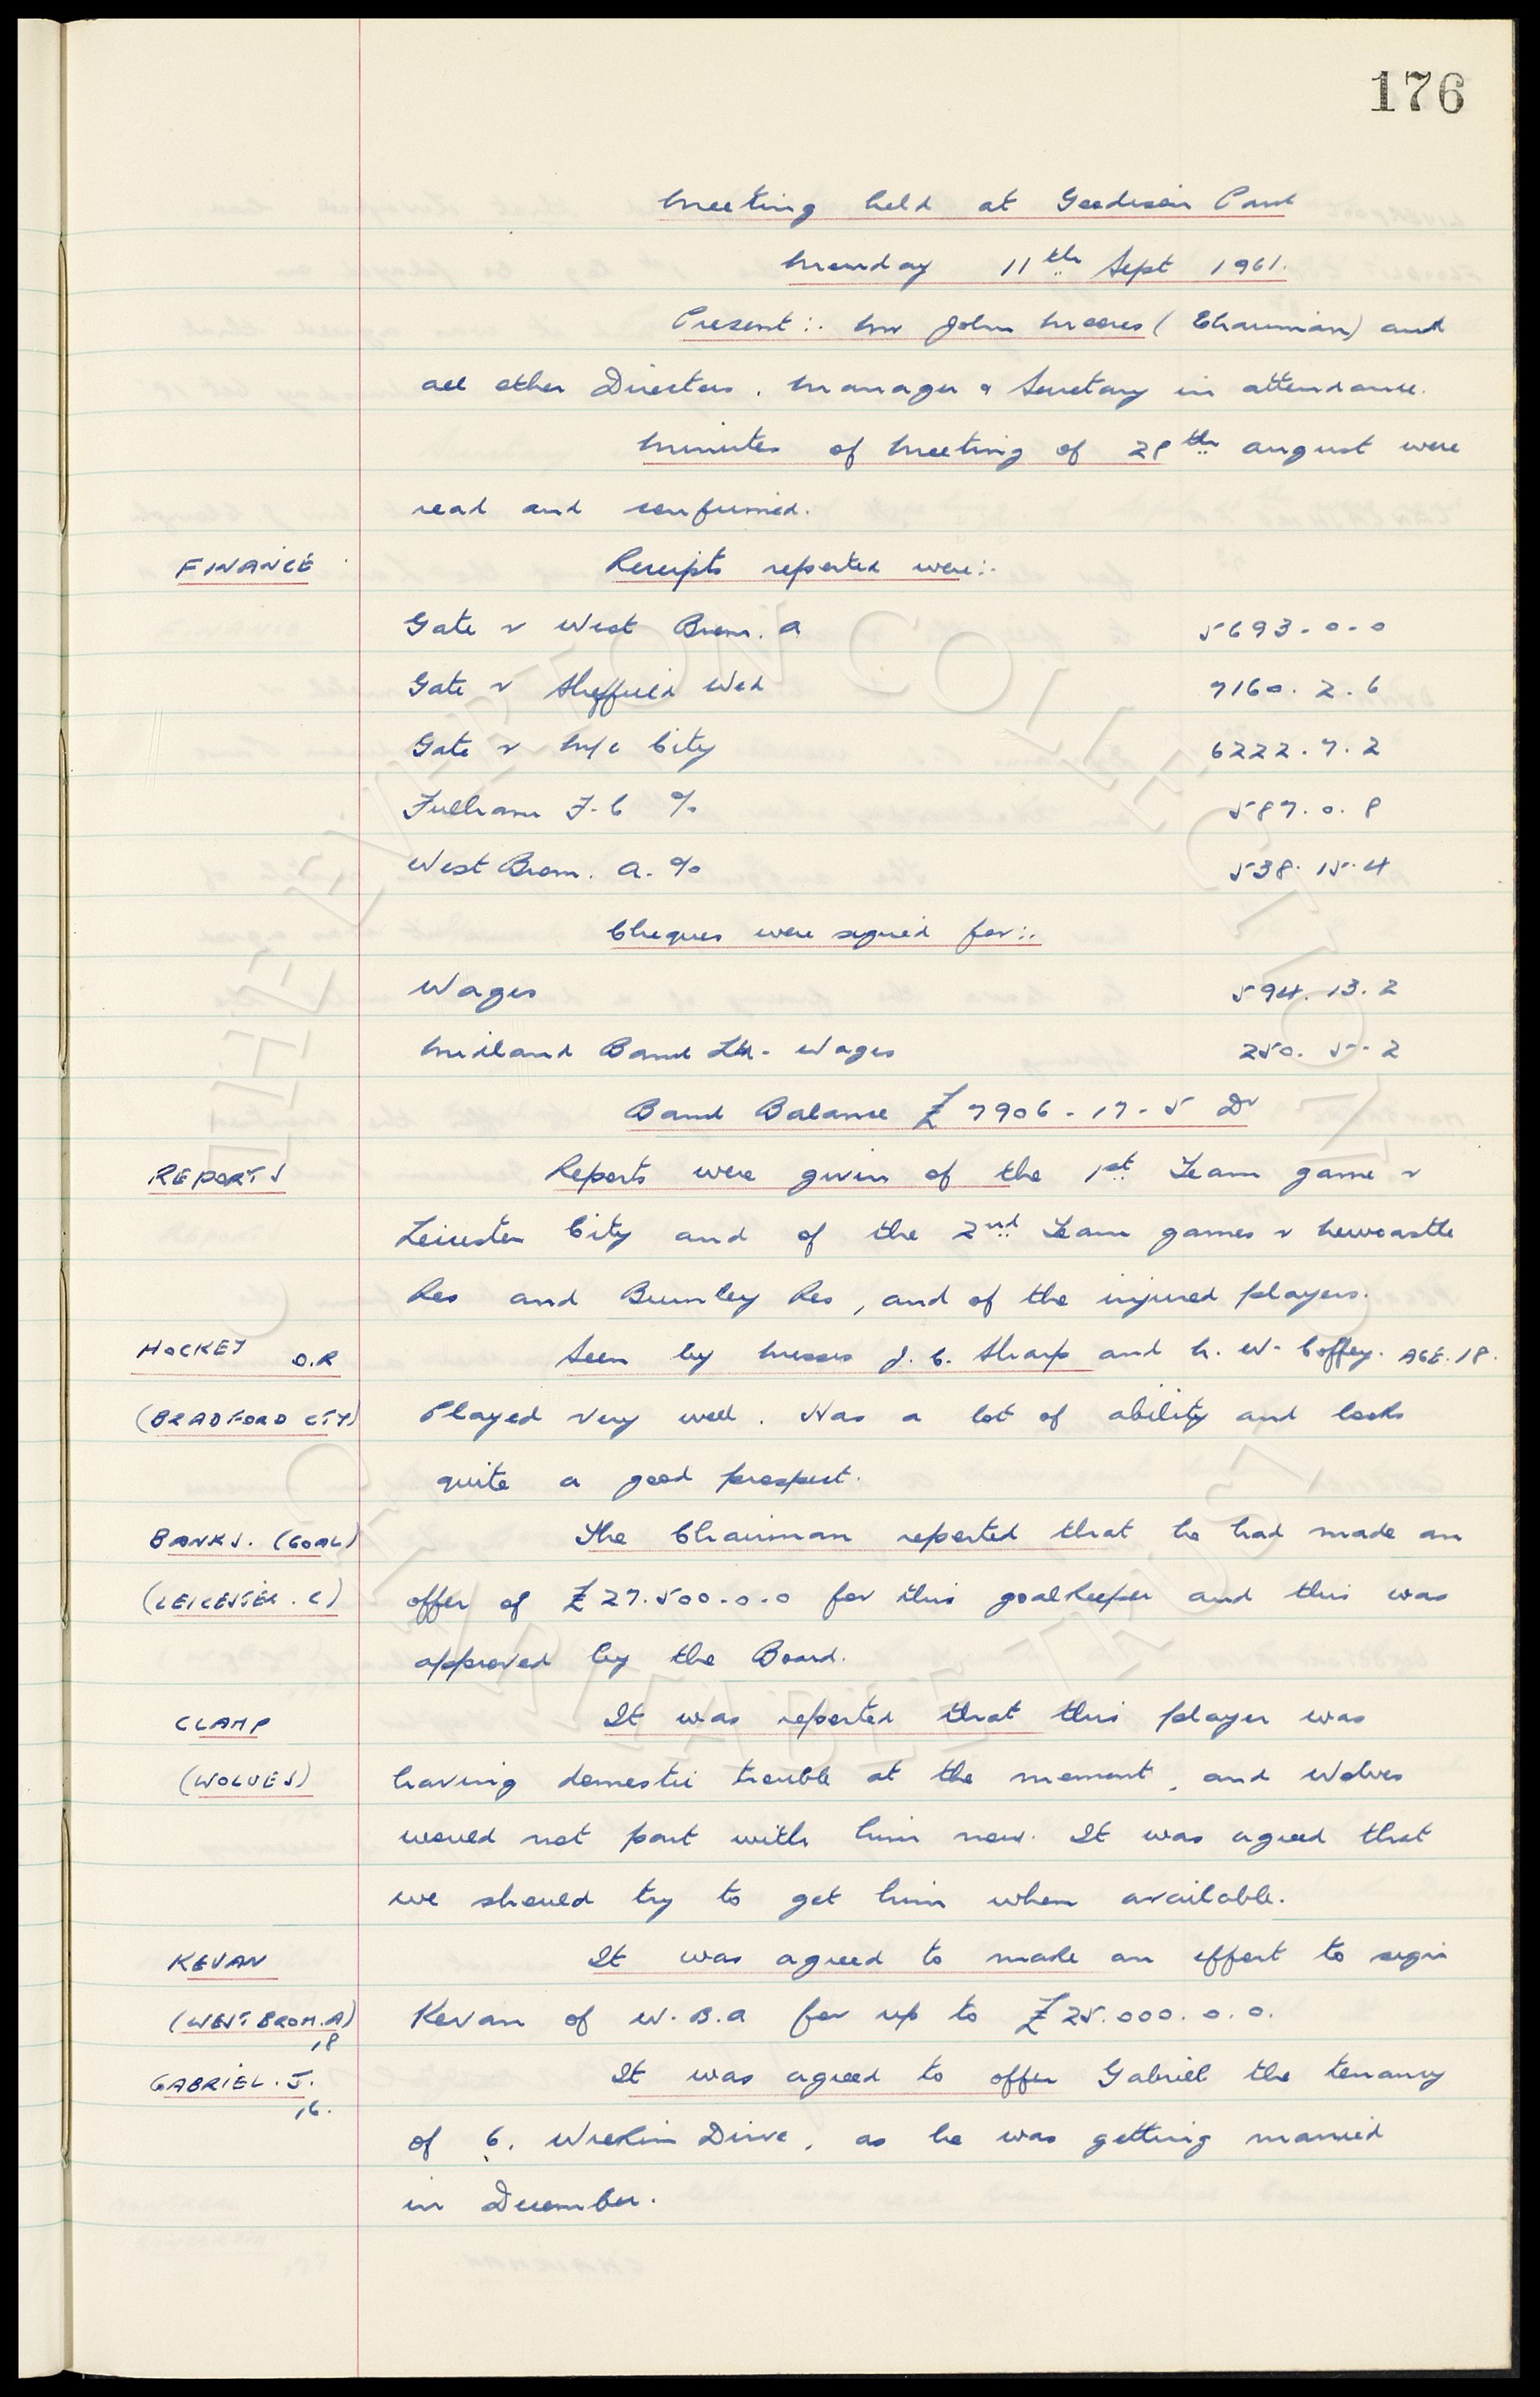 176
Meeting held at Goodison Park
Monday 11th Sept 1961.
Present:- Mr John Moores (Chairman) and
all other Directors. Manager & Secretary in attendance.
Minutes of Meeting of 28th August were
read and confirmed.
FINANCE Receipts reported were:-
Gate v West Brom. A 5693-0-0
Gate v Sheffield Wed 7160.2.6
Gate v M/c City 6222.7.2
Fulham F.C % 587.0.8
West Brom. A. % 538.15.4
Cheques were signed for:-
Wages 594.13.2
Midland Bank Ltd. Wages 250.5.2
Bank Balance £7906-17-5 Dr
REPORTS Reports were given of the 1st Team game v
Leicester City and of the 2nd Team games v Newcastle
Res and Burnley Res, and of the injured players.
HOCKEY O.R Seen by Messrs J. C. Sharp and H. W. Coffey. AGE. 18.
(BRADFORD CTY) Played very well. Has a lot of ability and looks
quite a good prospect.
BANKS. (GOAL) The Chairman reported that he had made an
(LEICESTER. C) offer of £27.500-0-0 for this goalkeeper and this was
approved by the Board.
CLAMP It was reported that this player was
(WOLVES) having domestic trouble at the moment, and Wolves
would not part with him now. It was agreed that
we should try to get him when available.
KEVAN It was agreed to make an effort to sign
(WEST BROM. A) Kevan of W.B.A for up to £25.000.0.0.
18
GABRIEL. J. It was agreed to offer Gabriel the tenancy
16.
of 6. Wrekin Drive, as he was getting married
in December.
THE EVERTON COLLECTION